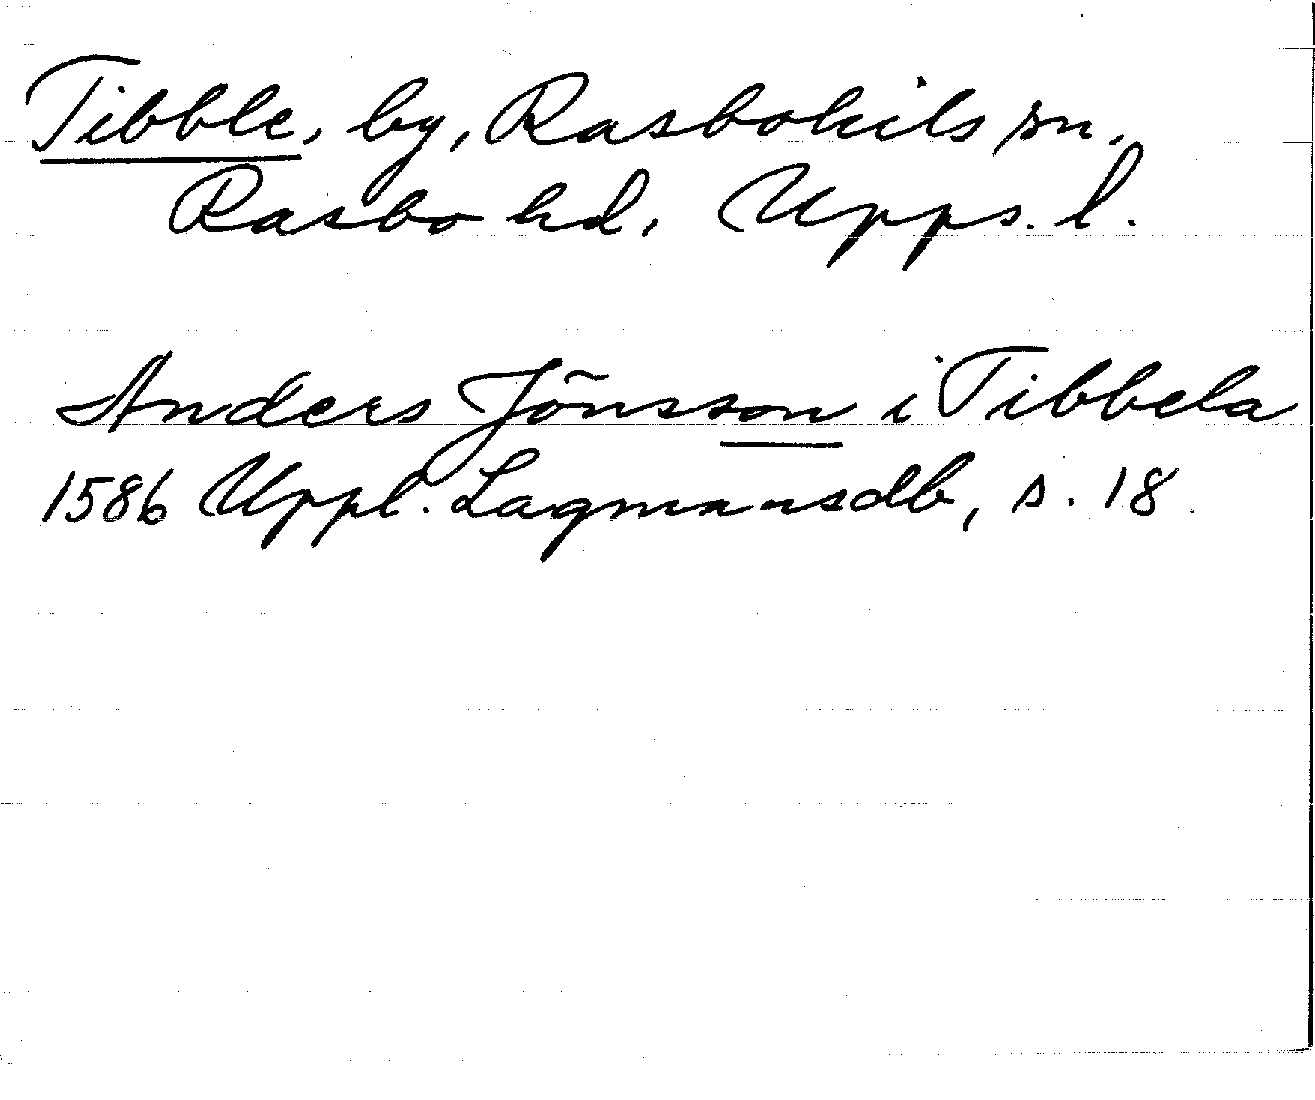 Tibble, by, Rasbokils sn,
Rasbo hd, Upps. l.
Anders Jönsson i Tibbela
1586 Uppl. Lagmansdb, s. 18.